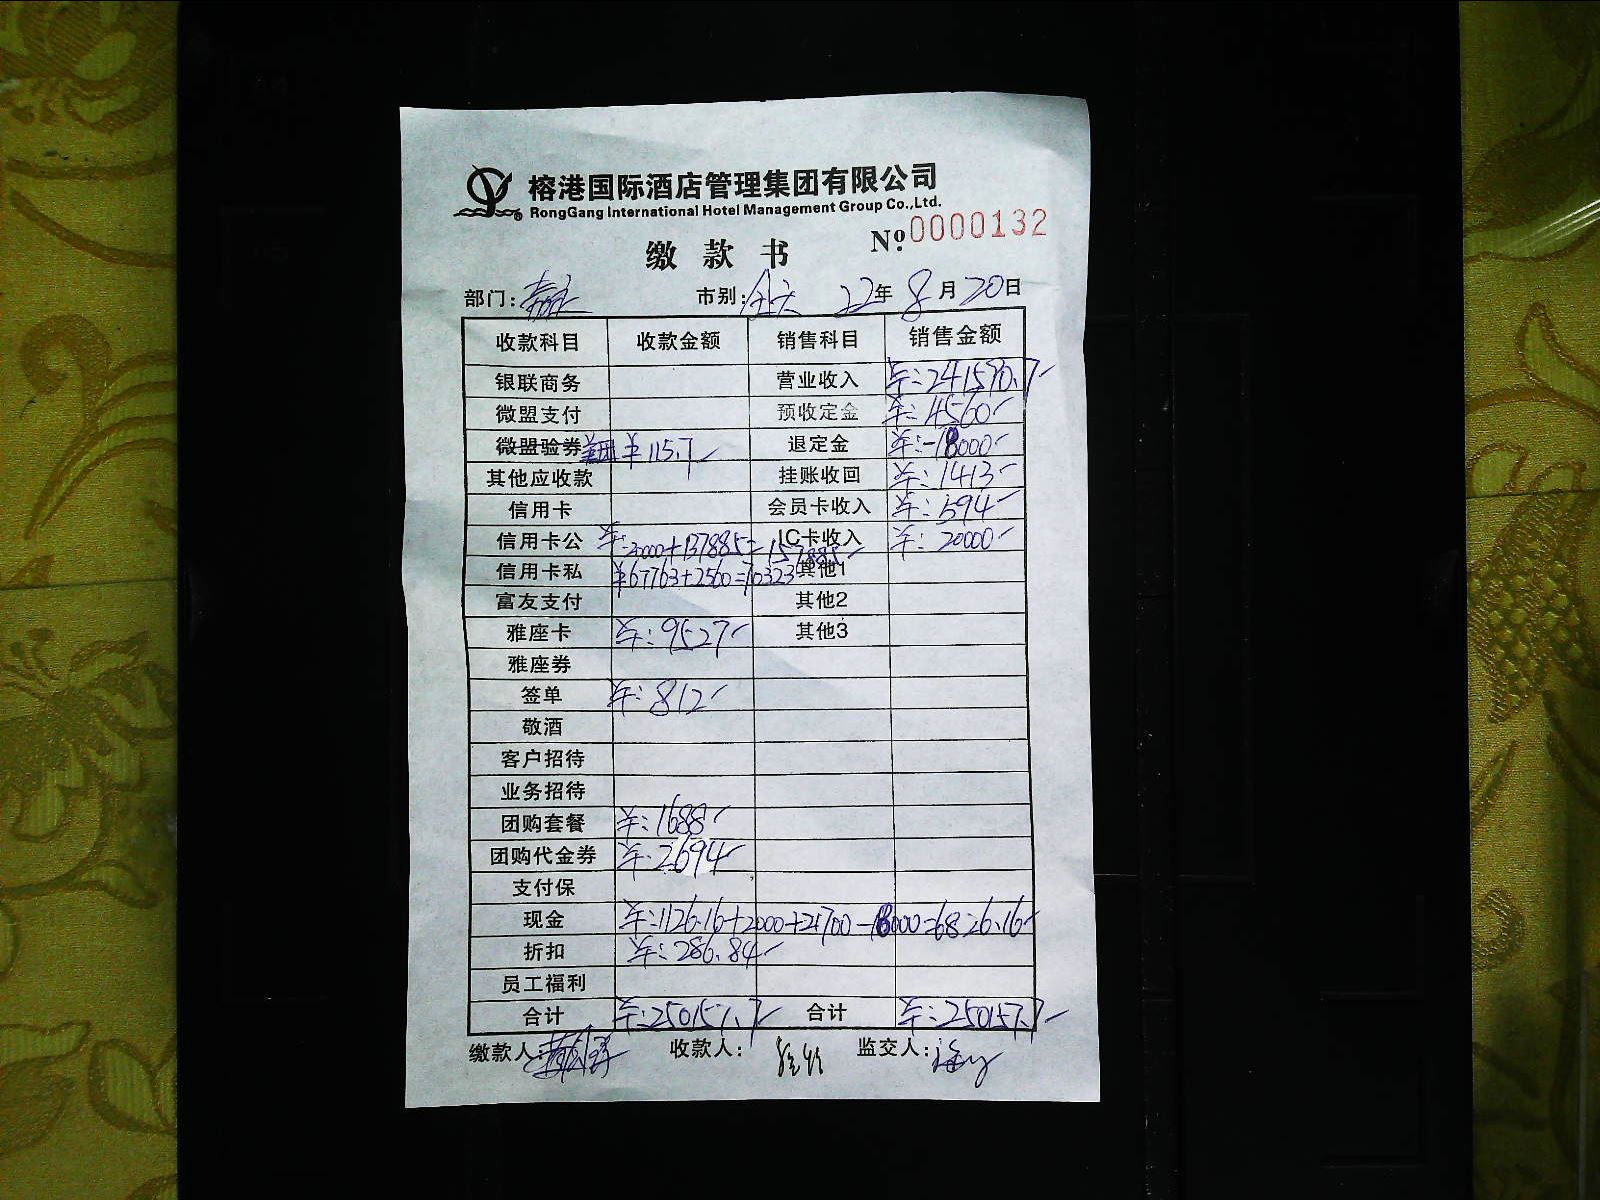 榕港国际酒店管理集团有限公司
RongGang International Hotel Management Group Co.,Ltd.
缴款书 № 0000132
部门: 市别: 22年 8月 20日
收款科目 收款金额 销售科目 销售金额
银联商务 营业收入 ¥:241590.7
微盟支付 预收定金 ¥:4560
微盟验券 美团 ¥115.7 退定金 ¥:-18000
其他应收款 挂账收回 ¥:1413
信用卡 会员卡收入 ¥:594
信用卡公 ¥:20000+137885=157885 IC卡收入 ¥:20000
信用卡私 ¥67763+2560=70323 其他1
富友支付 其他2
雅座卡 ¥:9527 其他3
雅座券
签单 ¥:812
敬酒
客户招待
业务招待
团购套餐 ¥:1688
团购代金券 ¥:2694
支付保
现金 ¥:1126.16+2000+21700-18000=6826.16
折扣 ¥:286.84
员工福利
合计 ¥:250157.7 合计 ¥:250157.7
缴款人: 收款人: 监交人: